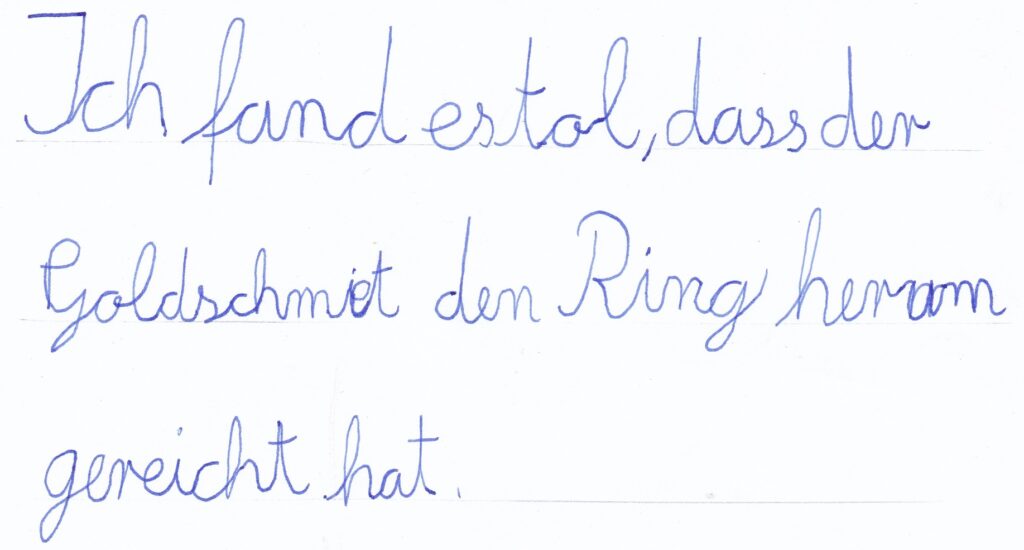 Ich fand es tol, dass der
Goldschmiet den Ring herum
gereicht hat.